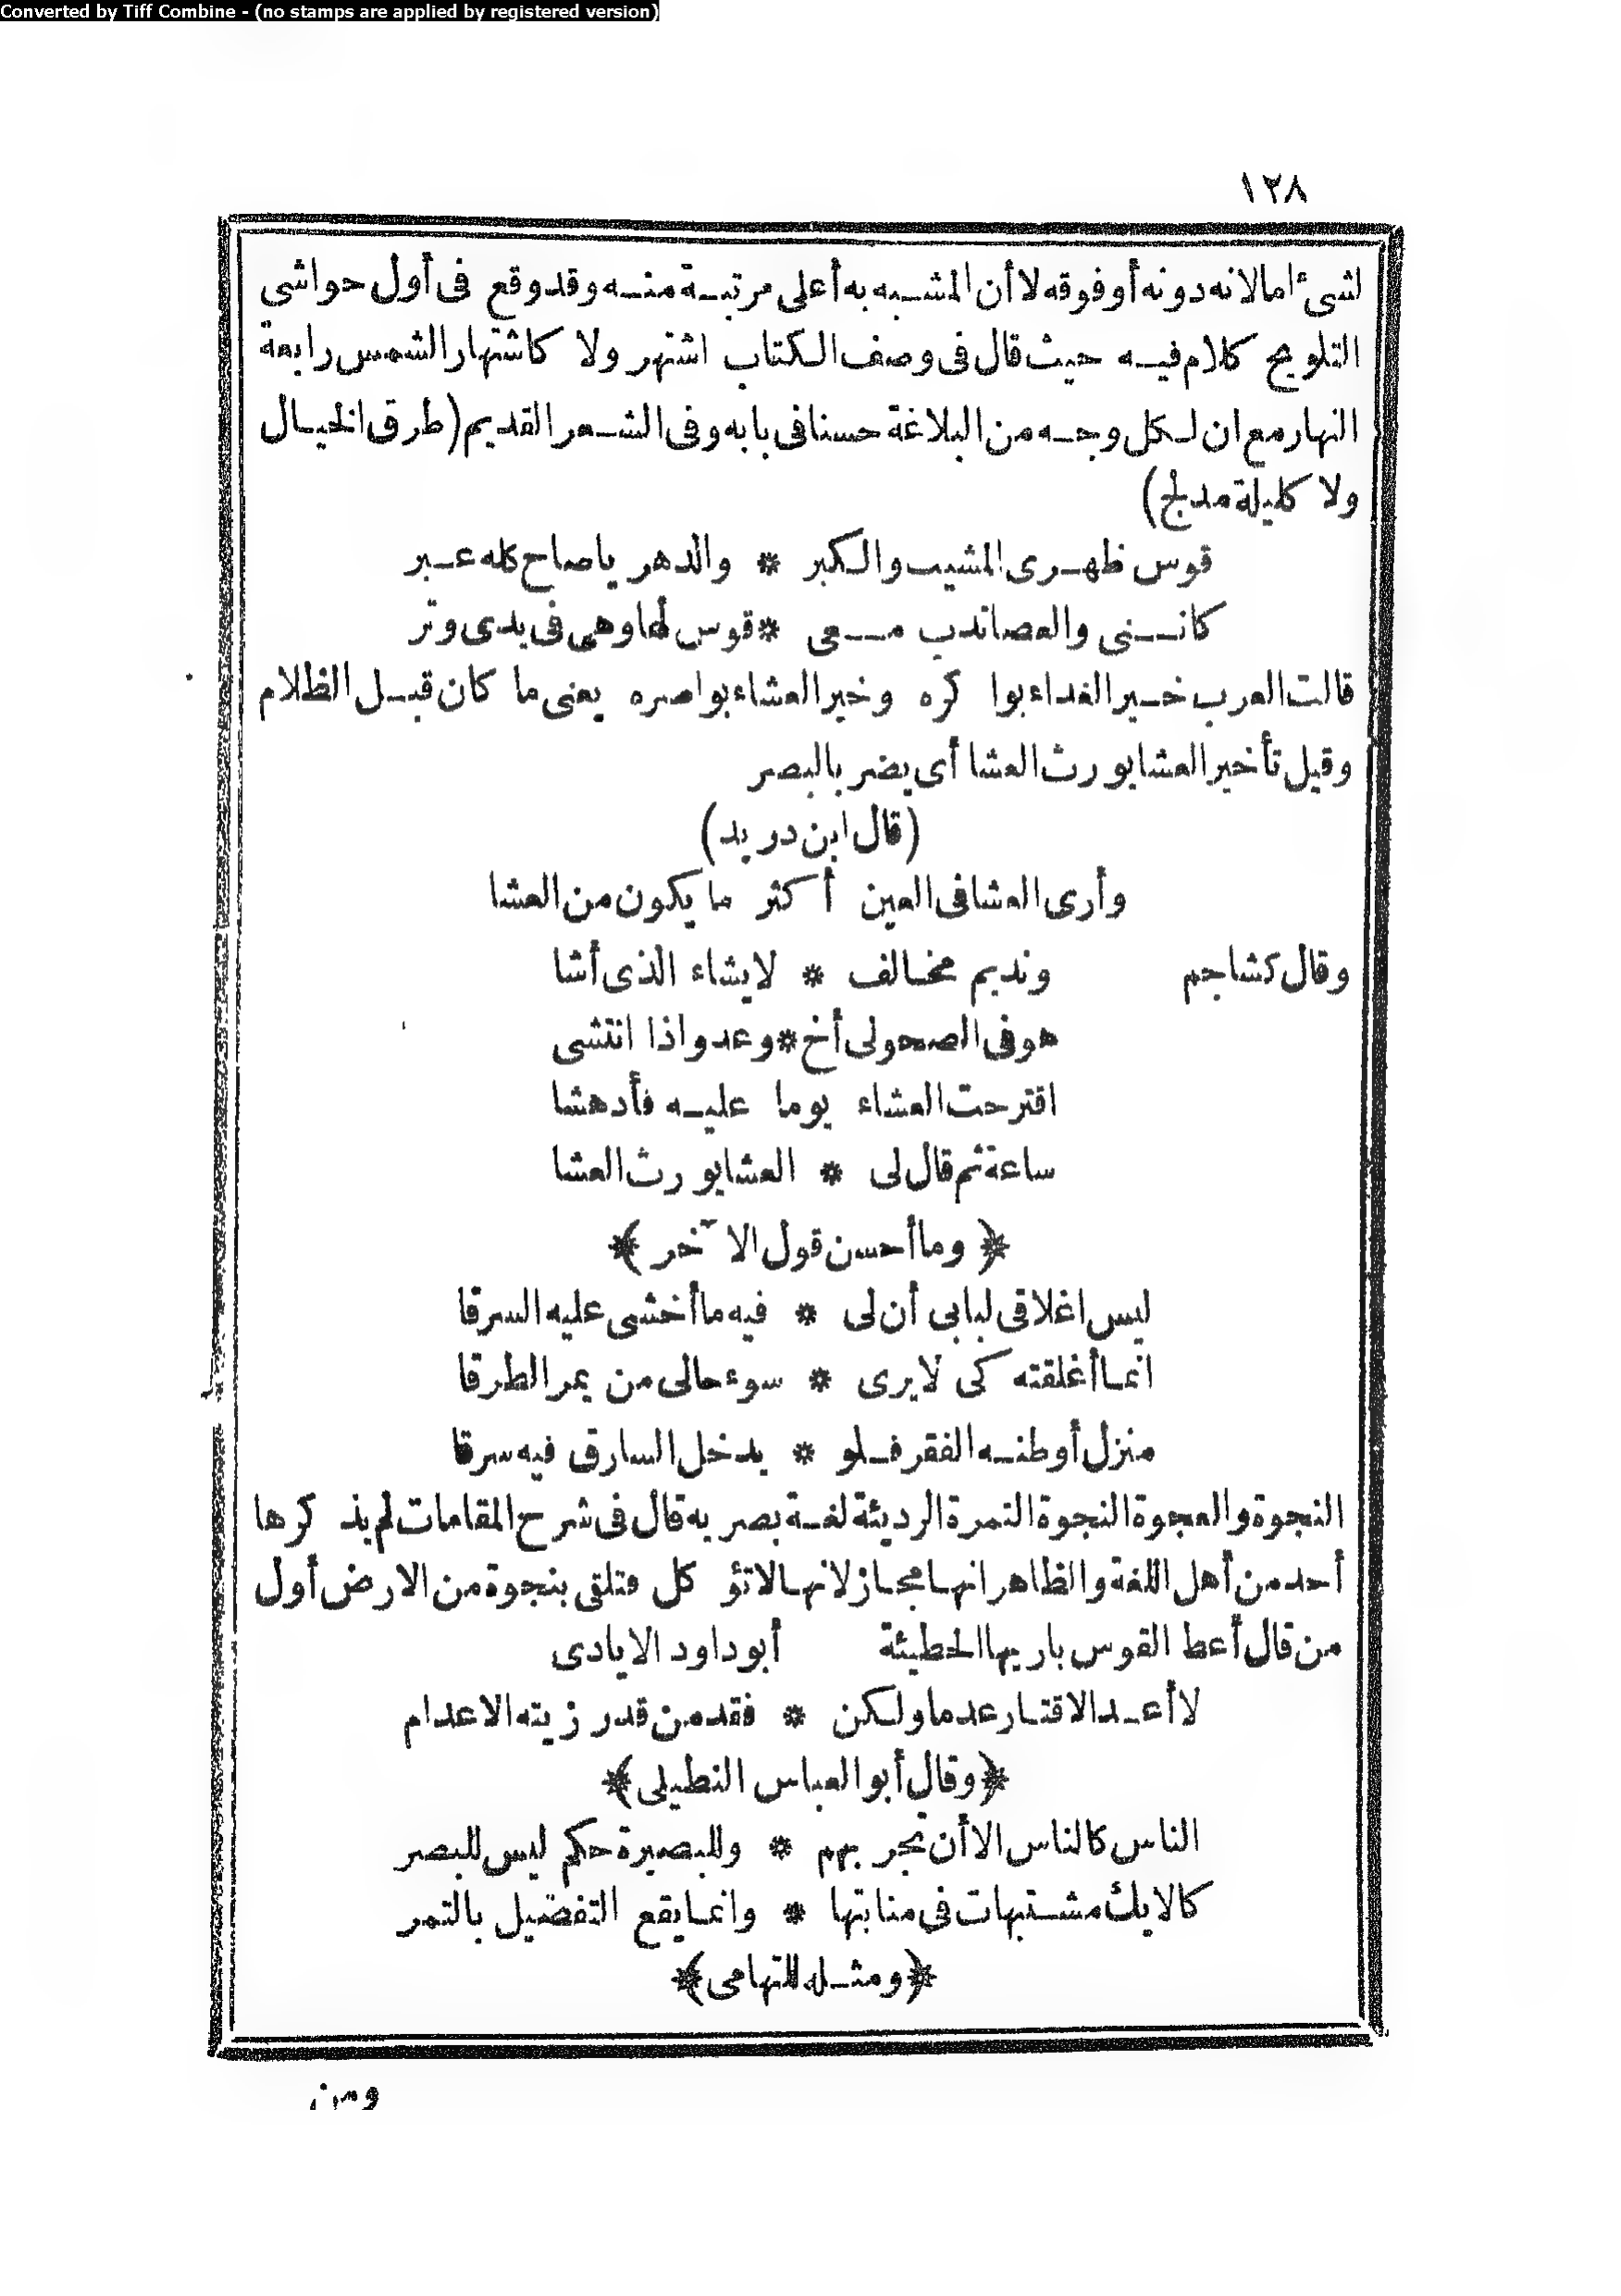 Converted by Tiff Combine - (no stamps are applied by registered version)
١٢٨
لشئ امالانه دونه أوفوقه لاأن المشبه به أعلى مرتبة منه وقدوقع فى أول حواشى
التلويح كلام فيه حيث قال فى وصف الكتاب اشتهر ولا كاشتهار الشمس رابعة
النهار مع ان لكل وجه من البلاغة حسنا فى بابه وفى الشعر القديم (طرق الخيال
ولا كليلة مدلج)
قوس ظهرى المشيب والكبر * والدهر ياصاح كله عبر
كاننى والعصاتدب معى * قوس لها وهى فى يدى وتر
قالت العرب خير الغداء بوا كره وخير العشاء بواصره يعنى ما كان قبل الظلام
وقيل تأخير العشا يورث العشا أى يضر بالبصر
(قال ابن دريد)
وأرى العشا فى العين أكثر ما يكون من العشا
وقال كشاجم ونديم مخالف * لايشاء الذى أشا
هو فى الصحو لى أخ * وعدو اذا انتشى
اقترحت العشاء يوما عليه فأدهشا
ساعة ثم قال لى * العشا يورث العشا
﴿وما أحسن قول الآخر﴾
ليس اغلاقى لبابى أن لى * فيه ما أخشى عليه السرقا
انما أغلقته كى لايرى * سوء حالى من يمر الطرقا
منزل أوطنه الفقر فلو * يدخل السارق فيه سرقا
النجوة والعجوة النجوة التمرة الرديئة لغة بصرية قال فى شرح المقامات لم يذ كرها
أحد من أهل اللغة والظاهر انها مجاز لانها لاتؤ كل فتلقى بنجوة من الارض أول
من قال أعط القوس باريها الحطيئة أبوداود الايادى
لاأعد الاقتار عدما ولكن * فقد من قدر زيته الاعدام
﴿وقال أبوالعباس النطيلى﴾
الناس كالناس الا أن تجر بهم * وللبصيرة حكم ليس للبصر
كالايك مشتبهات فى منابتها * وانما يقع التفضيل بالتمر
﴿ومثله للتهامى﴾
ومن